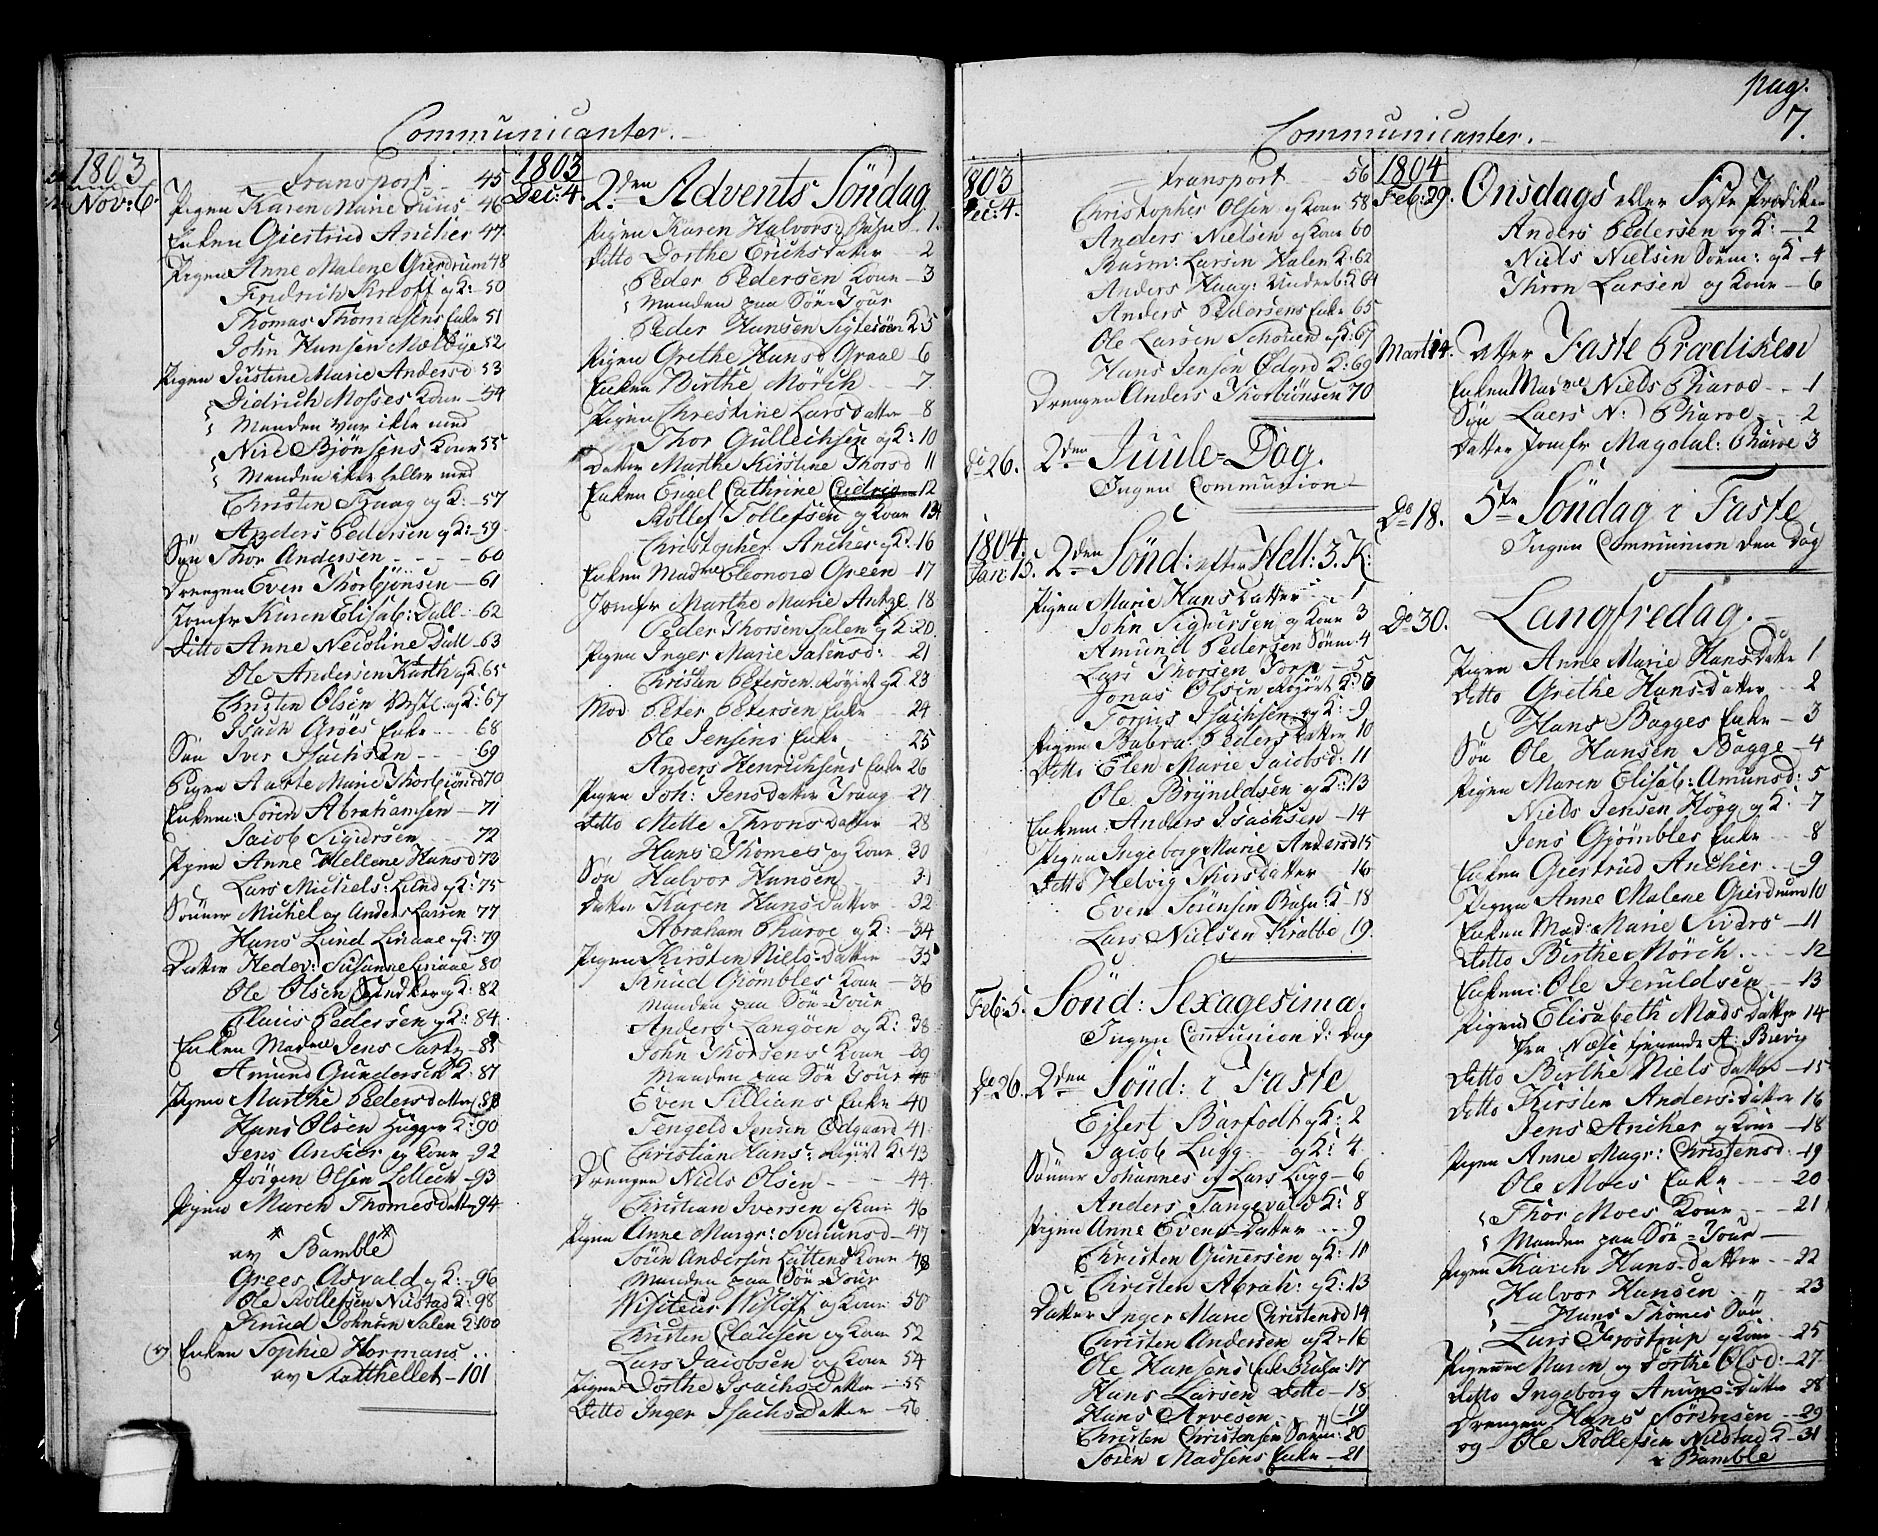 Communicanter.
1803
Nov: 6.
Transport 45
Pigen Karen Marie Juus 46
Enken Giertrud Ancher 47
Pigen Anne Malene Gierdrum 48
Fridrich Kreoft og K: 50
Thomas Thomasens Enke 51
John Hansen Melbye 52
Pigen Justine Marie Andersd 53
Didrich Mosses Kone 54
Manden var ikke med
Nire Bjönsens Kone 55
Manden ikke heller med
Christen Traag og K: 57
Anders Pedersen og K: 59
Sön Thor Andersen 60
Drengen Even Thorbjönsen 61
Jomfr Karen Elisab: Dall 62
Ditto Anne Nicoline Dall 63
Ole Andersen Kurth og K: 65
Christen Olsen og K: 67
Isach Gröes Enke 68
Sön Iver Isachsen 69
Pigen Aarte Marie Thorbiönsd 70
Enkem: Sören Abrahamsen 71
Jacob Sigursen 72
Pigen Anne Hellene Hansd 73
Lars Michels: Lund og K: 75
Sönner Michel og Anders Larsen 77
Hans Lund Liniaae og K: 79
Datter Hedev: Susanne Liniaae 80
Ole Olsen og K: 82
Claus Pedersen og K: 84
Enken Madme Jens Sartz 85
Amund Gundersen K: 87
Pigen Marthe Pedersdatter 88
Hans Olsen Hugger K: 90
Jens Ancher og Kone 92
Jörgen Olsen 93
Pigen Maren Thomesdatter 94
av Bamble
Grees Asvald og K: 96
Ole Rollefsen Nustad K: 98
Knud Johnsen Salen K: 100
Enken Sophie Hormans
av Statthellet 101
1803
Dec: 4.
2den Advents Söndag
Pigen Karen Halvors: 1.
Ditto Dorthe Erichsdatter 2
Peder Pedersen Kone 3
Manden paa Söe-Tour
Peder Hansen Sigtesöen K 5
Pigen Grethe Hansd Graae 6
Enken Birthe Mörch 7.
Pigen Chrestine Larsdatter 8
Thor Gullechsen og K: 10
Datter Marthe Kirstine Thorsd 11
Enken Engel Cathrine 12
Rollef Tollefsen og Kone 14
Christopher Ancher og K: 16
Enken Madme Eleonore Green 17
Jomfr Marthe Marie Antze 18
Peder Thorsen Salen og K: 20.
Pigen Inger Marie Salensd: 21
Christen Petersen Röyert og K: 23
Mad Peter Petersen Enke 24
Ole Jensens Enke 25
Anders Henrichsens Enke 26
Pigen Joh: Jensdatter Traag 27
Ditto Mette Thronsdatter 28
Hans Thomes og Kone 30
Sön Halvor Hansen 31
Datter Karen Hansdatter 32
Abraham Pharoe og K: 34
Pigen Kirsten Niels-Datter 35
Knud Gjömbles Kone 36
Manden paa Söe-Tour
Anders Langöen og K: 38
John Thorsens Kone 39
Manden paa Söe Tour
Even Sillians Enke 40
Tengeld Jensen Ödgaard 41
Christian Hans: Röyert K: 43
Drengen Niels Olsen 44
Christian Iversen og Kone 46
Pigen Anne Margr: Svenunsd 47
Sören Andersen Lattens Kone 48
Manden paa Söe Tour
Visiteur Wisloff og Kone 50
Christen Clausen og Kone 52
Lars Jacobsen og Kone 54
Pigen Dorthe Isachsdatter 55
Ditto Inger Isachsdatter 56
pag.
7.
Communicanter.
1803
Dec: 4.
Transport 56
Christopher Olsen og Kone 58
Anders Nielsen og Kone 60
Rasm: Larsen Halen K: 62
Anders Haag: Underb: K 64
Anders Pedersens Enke 65
Ole Larsen Schouen og K: 67
Hans Jensen Ödgrd K: 69
Drengen Anders Thorbiönsen 70
Do 26.
2den Juule-Dag.
Ingen Communion
1804.
Jan: 15.
2den Sönd: efter Hell: 3. K:
Pigen Marie Hansdatter 1
John Sigversen og Kone 3
Amund Pedersen Sönn 4
Lars Thorsen Torp 5
Jonas Olsen Röyert K: 7
Torjus Isachsen og K: 9
Pigen Babra Pedersdatter 10
Ditto Elen Marie Jacobsd: 11
Ole Brynildsen og K: 13
Enkem: Anders Isachsen 14
Pigen Ingeborg Marie Andersd 15
Ditto Helvig Thorsdatter 16
Even Sörensen K: 18
Lars Nielsen Krabbe 19.
Feb: 5.
Sönd: Sexagesima.
Ingen Communion d: Dag
Do 26.
2den Sönd: i Faste
Ejlert Barfodt og K: 2
Jacob Lugg og K: 4
Sönner Johannes og Lars Lugg 6
Anders Tangevald K: 8
Pigen Anne Evens-Datter 9
Christen Gunersen og K: 11
Christen Abrah: og K: 13
Datter Inger Marie Christensd 14
Christen Andersen og K: 16
Ole Hansens Enke 17
Hans Larsen Ditto 18
Hans Arvesen 19
Christen Christensen Sönn: 20
Sören Madsens Enke 21
1804
Feb: 29.
Onsdags eller Faste Prædiken
Anders Pedersen og K: 2
Niels Nielsen Sönn: og K 4
Thron Larsen og Kone 6
Marti 14.
Atter Faste Prædiken
Enken Madme Niels Pharoe 1
Sön Laers N: Pharoe 2
Datter Jomfr Magdal: Pharoe 3
Do 18.
5te Söndag i Faste
Ingen Communion den Dag
Do 30.
Langfredag.
Pigen Anne Marie Hansdatter 1
Ditto Grethe Hans-datter 2
Hans Bagges Enke 3
Sön Ole Hansen Bagge 4
Pigen Maren Elisab: Amunsd: 5
Niels Jensen Högg og K: 7
Jens Gjömbles Enke 8
Enken Giertrud Ancher 9
Pigen Anne Malene Gierdrum 10
Enken Mad: Marie Sivers 11
Ditto Birthe Mörch 12
Enkem: Ole Jeruldsen 13
Pigen Elisabeth Madsdatter 14
fra Næse tienende A: Brevig
Ditto Birthe Nielsdatter 15
Ditto Kirsten Anders:datter 16
Jens Ancher og Kone 18
Pigen Anne Magr: Christensd 19
Ole Moes Enke 20
Thor Moes Kone 21
Manden paa Söe-Tour
Pigen Karen Hans-datter 22
Halvor Hansen 23
Hans Thomes Sön
Lars Frostrup og Kone 25
Pigerne Maren og Dorthe Olsd: 27
Ditto Ingeborg Anuns-datter 28
Drengen Hans Sörensen 29
og Ole Rollefsen Nustad K 31
Bamble